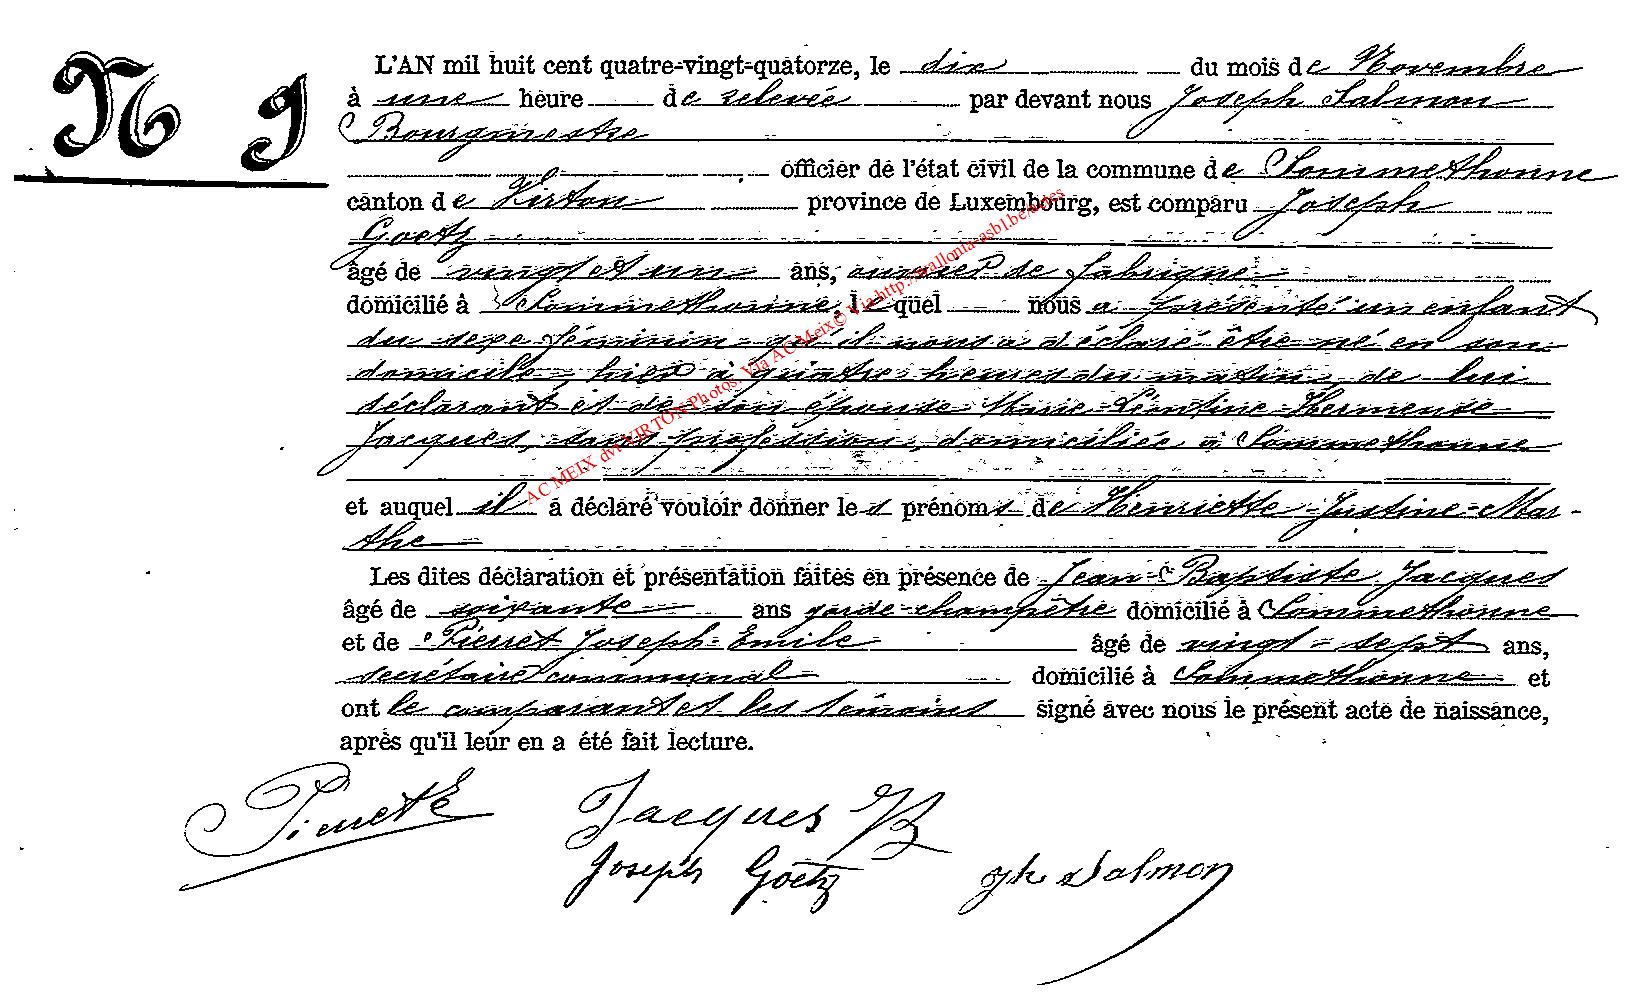 N 9
L'AN mil huit cent quatre-vingt-quatorze, le dix du mois de Novembre
à une heure de relevée par devant nous Joseph Salmon
Bourgmestre
officier de l'état civil de la commune de Sommethonne
canton de Virton province de Luxembourg, est comparu Joseph
Goetz
âgé de vingt et un ans, ouvrier de fabrique
domicilié à Sommethonne, lequel nous a présenté un enfant
du sexe féminin qu'il nous a déclaré être né en son
domicile, hier à quatre heures du matin, de lui
déclarant et de son épouse Marie-Léontine-Hermense
Jacques, sans profession, domiciliée à Sommethonne
et auquel il a déclaré vouloir donner les prénoms de Henriette-Justine-Mar-
the
Les dites déclaration et présentation faites en présence de Jean-Baptiste Jacques
âgé de soixante ans garde-champêtre domicilié à Sommethonne
et de Pierret Joseph-Emile âgé de vingt-sept ans,
secrétaire communal domicilié à Sommethonne et
ont le comparant et les témoins signé avec nous le présent acte de naissance,
après qu'il leur en a été fait lecture.
AC MEIX dvt VIRTON Photos: Via AC Meix © Via http://wallonia-asbl.be/actes
Jacques JB
Joseph Goetz Jph Salmon